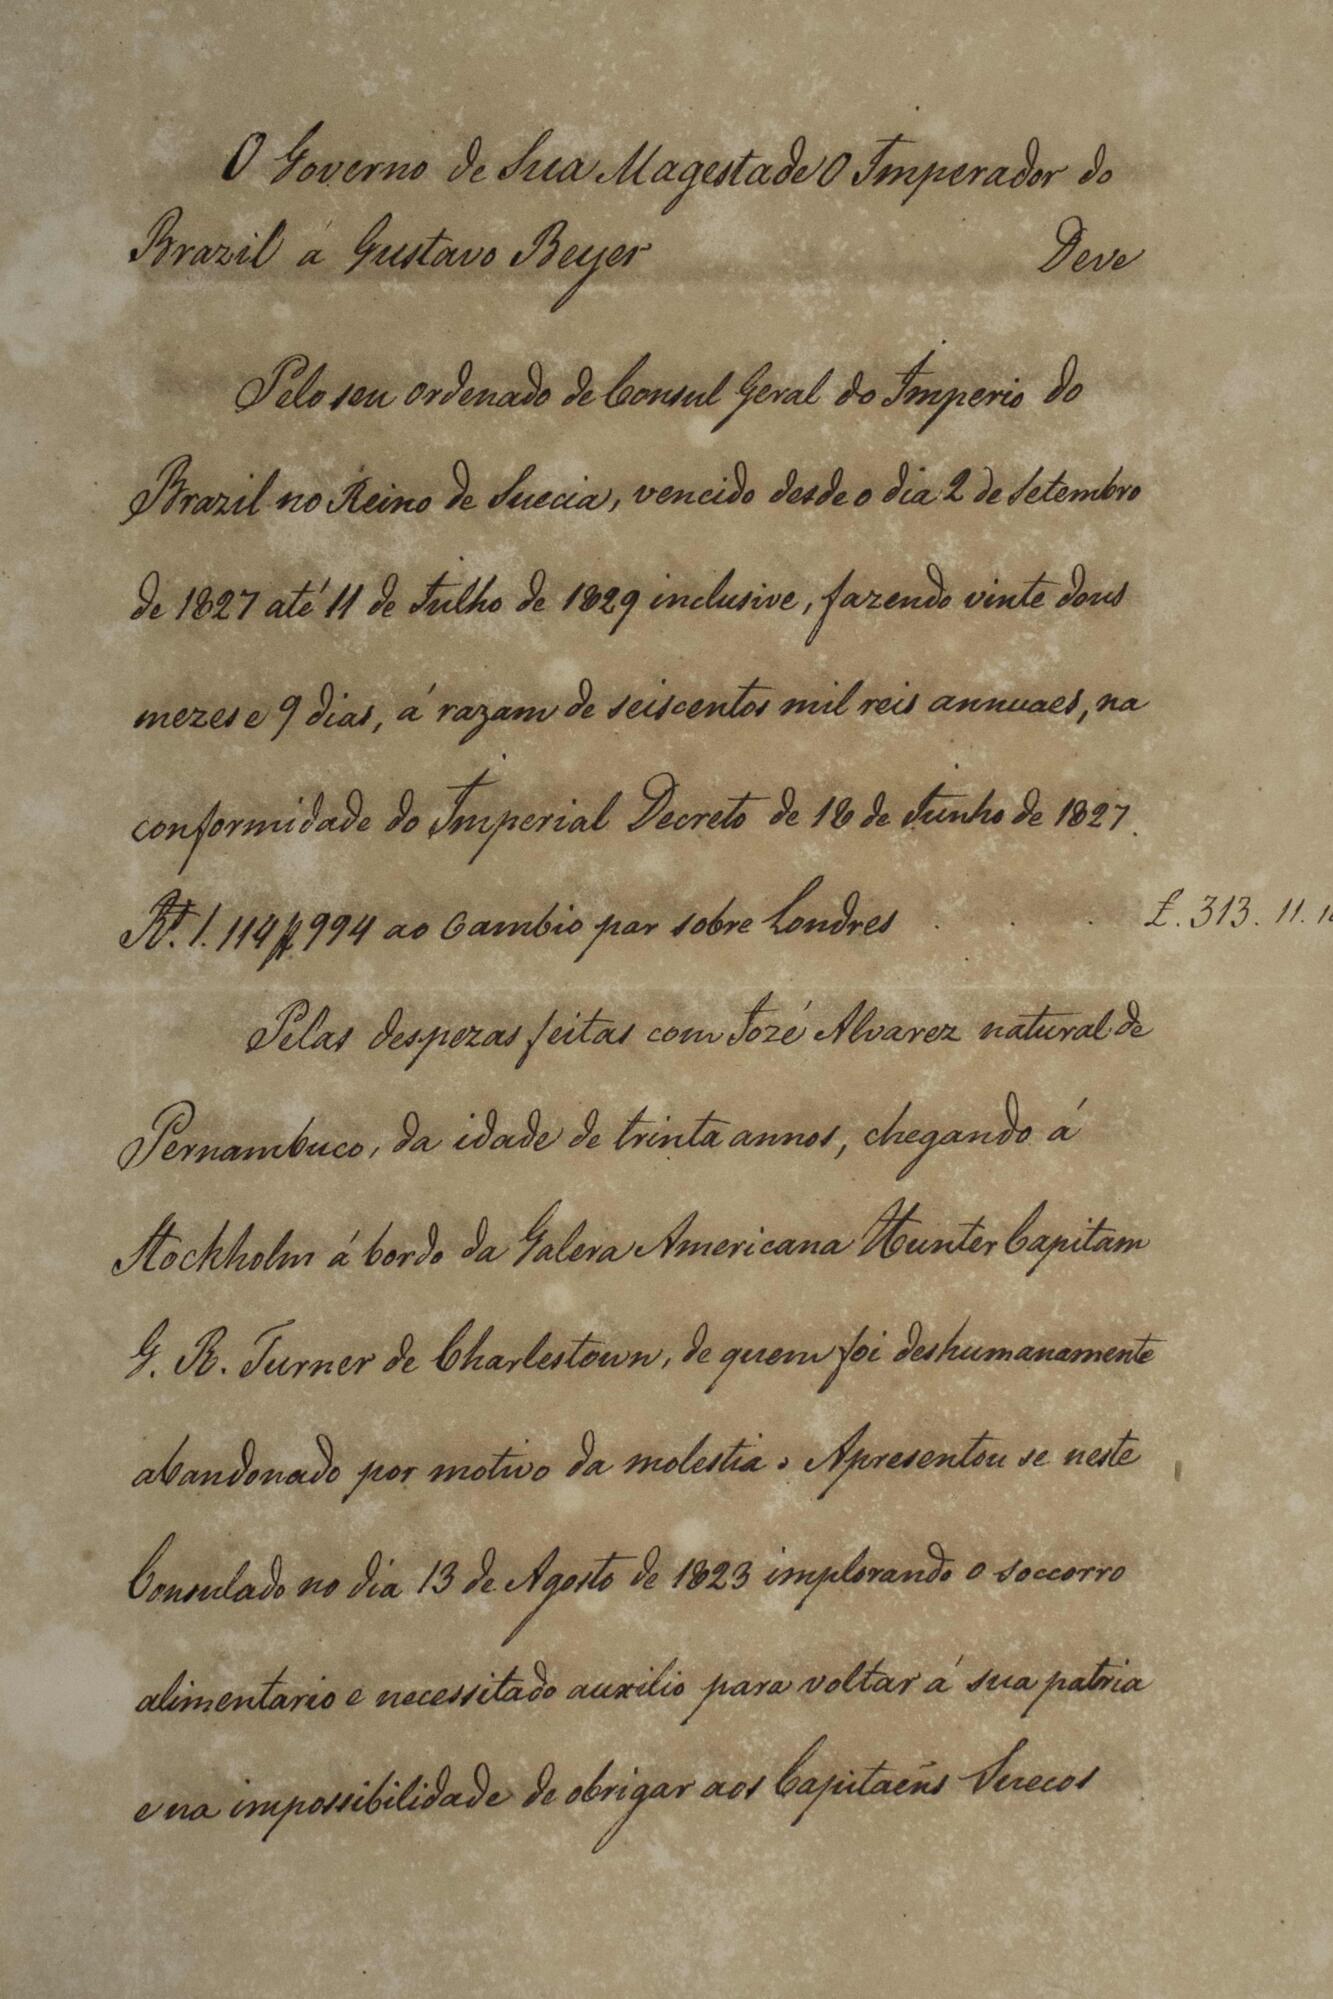 O Governo de Sua Magestade O Imperador do
Brazil á Gustavo Beyer Deve
Pelo seu ordenado de Consul Geral do Imperio do
Brazil no Reino de Suecia, vencido desde o dia 2 de Setembro
de 1827 até 11 de Julho de 1829 inclusive, fazendo vinte dous
mezes e 9 dias, á razam de seiscentos mil reis annuaes, na
conformidade do Imperial Decreto de 18 de Junho de 1827.
Rs. 1.114$994 ao Cambio par sobre Londres . . . £. 313. 11.
Pelas despezas feitas com Jozé Alvarez natural de
Pernambuco, da idade de trinta annos, chegando á
Stockholm á bordo da Galera Americana Hunter Capitam
G. R. Turner de Charlestown, de quem foi deshumanamente
abandonado por motivo da molestia. Apresentou se neste
Consulado no dia 13 de Agosto de 1823 implorando o soccorro
alimentario e necessitado auxilio para voltar á sua patria
e na impossibilidade de obrigar aos Capitaẽns Suecos